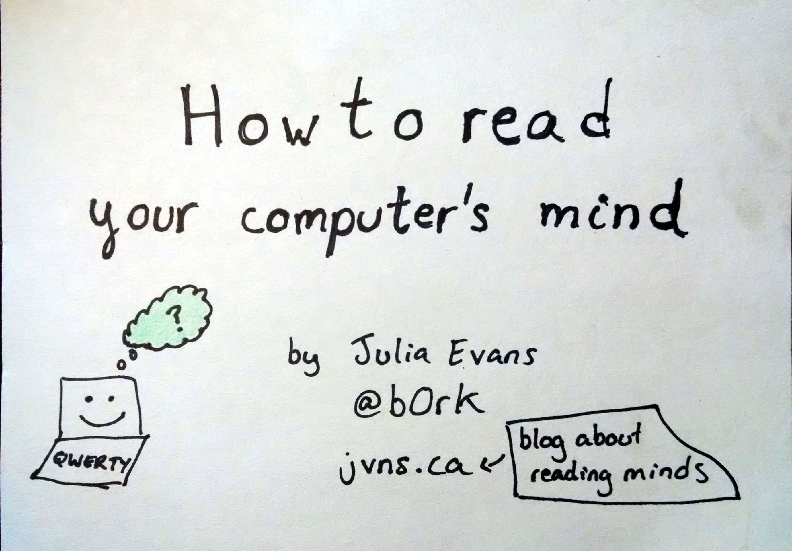 How to read
your computer's mind
?
by Julia Evans
@b0rk
jvns.ca
blog about
reading minds
QWERTY